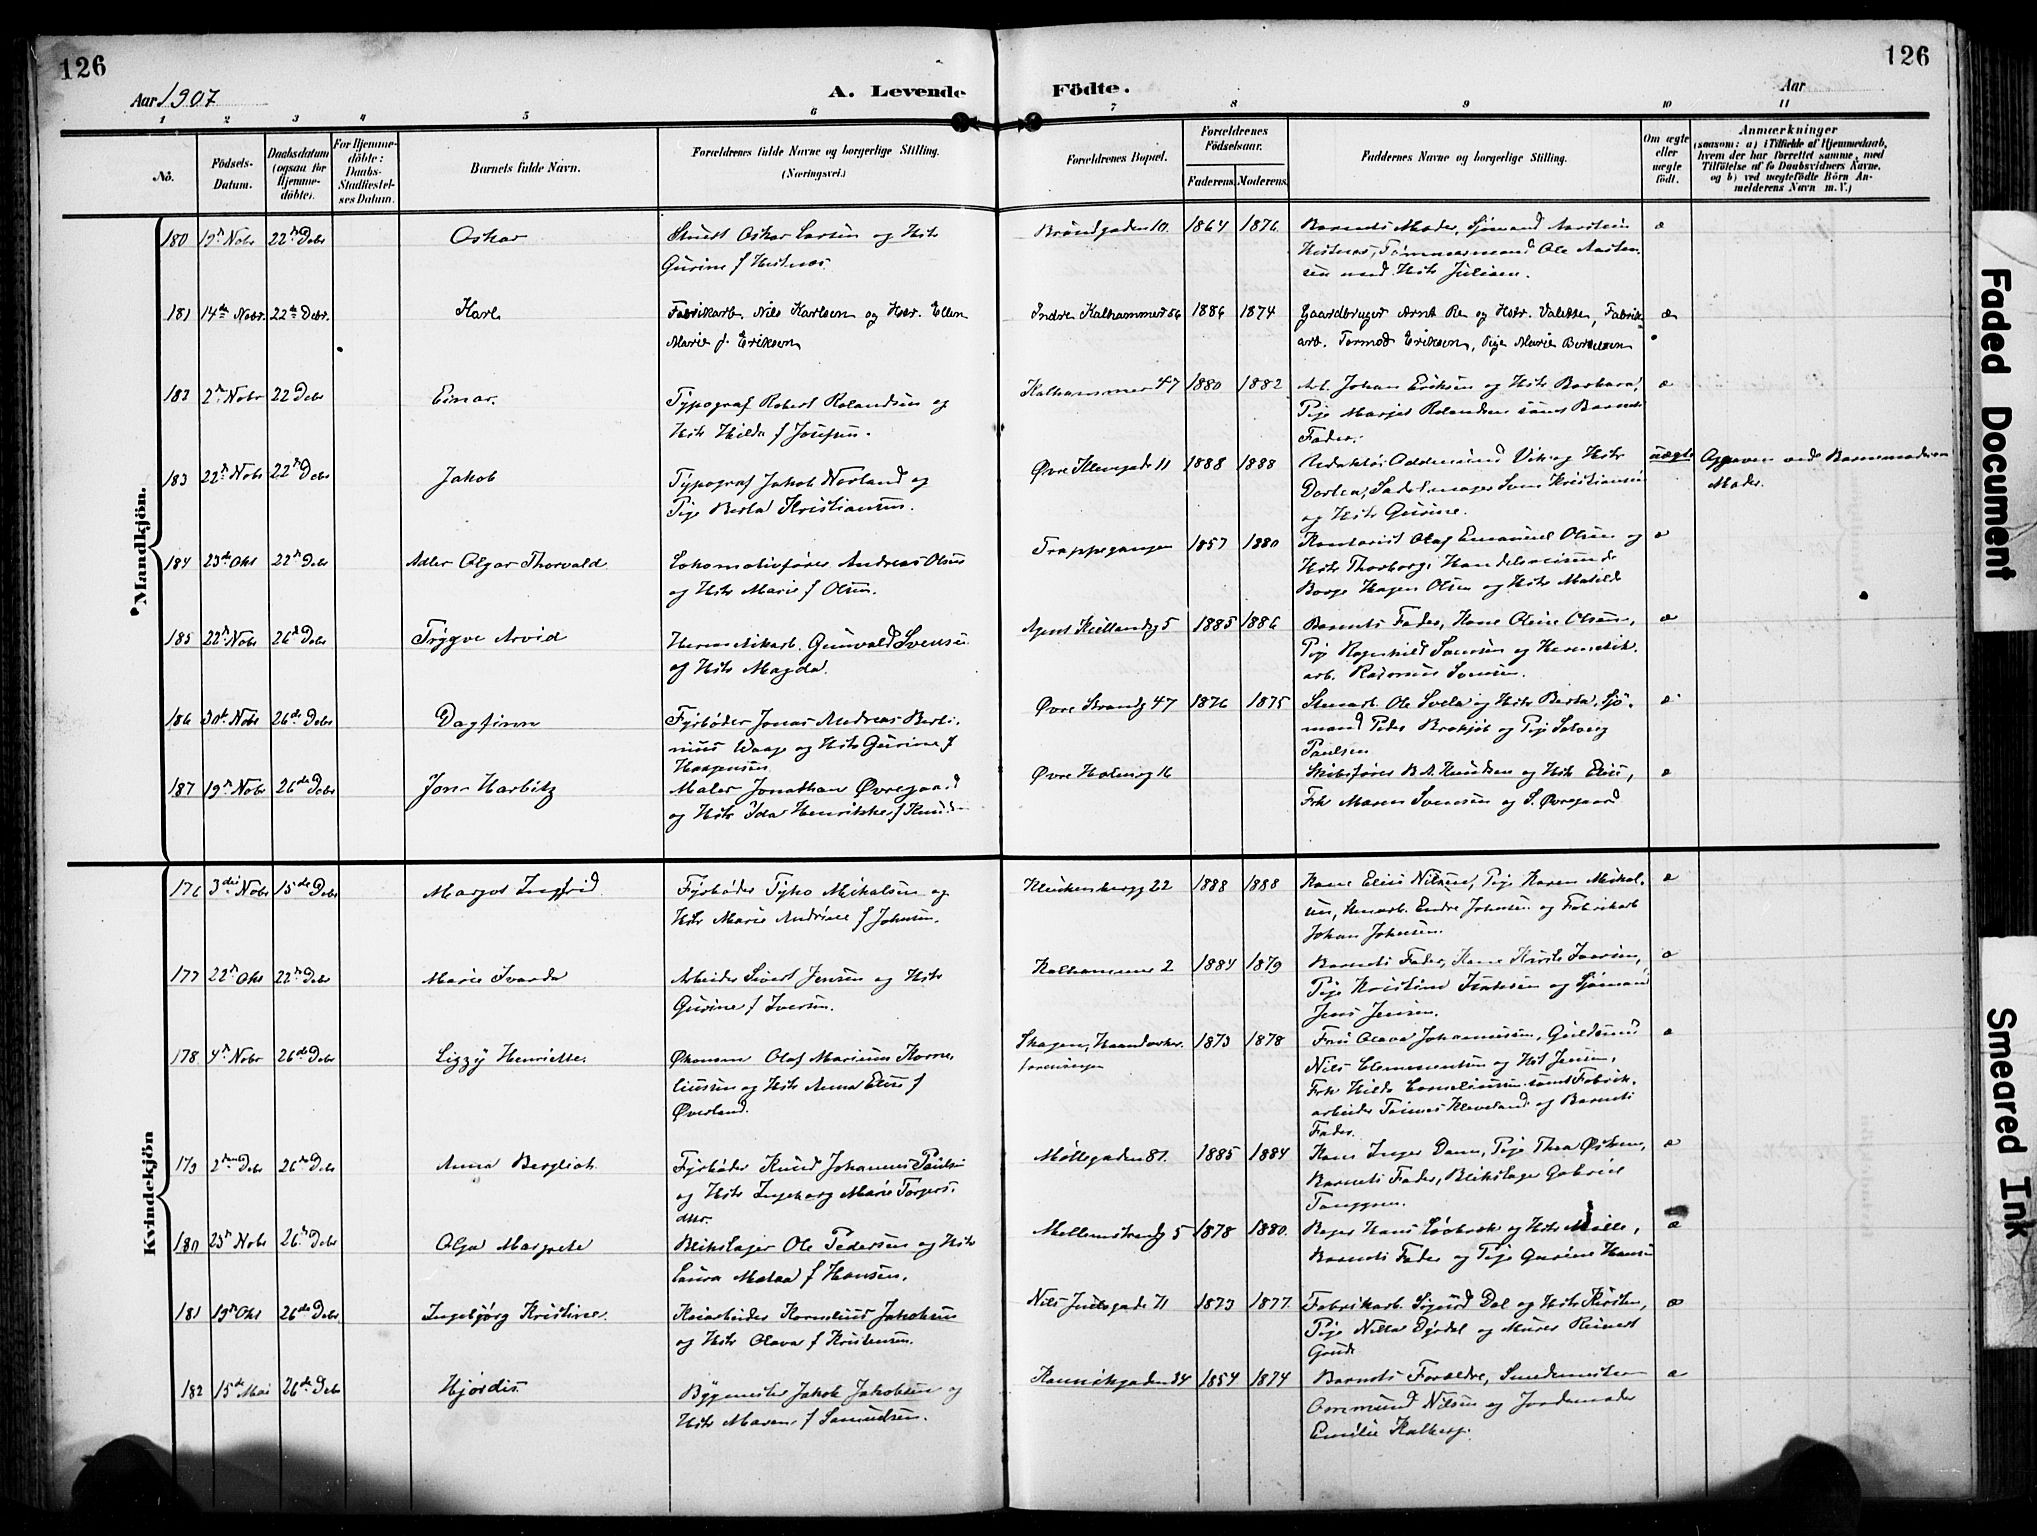 126
126
Aar 1907
A. Levende Födte.
Aar
1 2 3 4 5 6 7 8 9 10 11
No.
Födsels-Datum.
Daabsdatum (ogsaa for Hjemme-döbte).
For Hjemme-döbte: Daabs-Stadfæstel-ses Datum.
Barnets fulde Navn.
Forældrenes fulde Navne og borgerlige Stilling.
(Næringsvei.)
Forældrenes Bopæl.
Forældrenes Födselsaar.
Faderens. Moderens.
Faddernes Navne og borgerlige Stilling.
Om ægte eller uægte födt.
Anmærkninger
(saasom: a) i Tilfælde af Hjemmedaab, hvem der har forrettet samme, med Tilföielse af to Daabsvidners Navne, og b) ved uægtefödte Börn An-melderens Navn m. V.)
Mandkjön.
180 19n Nobr 22n Debr Oskar Oskar Larsen og Hstr
Gurine f Hestnæs.
Brøndgaden 10. 1864 1876 Barnets Moder, Sjømand Aarstein
Hestnæs, Tømmermand Ole Aasten-
sen med Hstr Juliane. æ
181 14de Nobr. 22de Debr. Karl Fabrikarb. Nils Karlsen og Hstr. Ellen
Marie f. Eriksen
Indre Kalhammer 56 1886 1874 Gaardbruger Arnt Re og Hstr. Valette, Fabrik-
arb. Tormod Eriksen, Pige Marie Bertelsen æ
182 2n Nobr 22 Debr Einar. Typograf Robert Rolandsen og
Hstr Hilda f Josefsen.
Kalhammer 47 1880 1882 Arb. Johan Eriksen og Hstr Barbara,
Pige Marjet Rolandsen samt Barnets
Fader. æ
183 22n Nobr 22n Debr Jakob Typograf Jakob Norland og
Pige Berta Kristiansen.
Øvre Klevegade 11 1888 1888 Redaktør Oddmund Vik og Hstr
Dortea, Sadelmager Sven Kristiansen
og Hstr Gurine. uægte Opgaven ved Barnemoderens
Moder.
184 23de Okt 22n Debr Adler Olgar Thorvald Lokomotivfører Andreas Olsen
og Hstr Marie f Olsen.
Trappegangen 1857 1880 Kontorist Olaf Emanuel Olsen og
Hstr Thorborg, Handelsreisende
Borge Hagen Olsen og Hstr Matilde æ
185 22n Nobr 26de Debr Trygve Arvid Hermetikarb. Gunvald Svensen
og Hstr Magda.
Agent Kiellandsg 5 1885 1886 Barnets Fader, Kone Oline Olsen,
Pige Ragnhild Svensen og Hermetik-
arb. Rasmus Svensen. æ
186 30te Nobr 26de Debr Dagfinn Fyrbøder Jonas Andreas Berti-
nius Waage og Hstr Gurine f
Haagensen
Øvre Strandg 47 1876 1875 Stenarb. Ole Svela og Hstr Berta, Sjø-
mand Peder Brekjøb og Pige Solveig
Paulsen æ
187 19n Nobr 26de Debr Jon Harbitz Maler Jonathan Øvregaard
og Hstr Ida Henrikke f Knudsen
Øvre Holmeg 16 Skibsfører B. A. Knudsen og Hstr Elise,
Frk Maren Svensen og S. Øvregaard æ
Kvindekjön
176 3die Nobr 15de Debr Margot Ingfrid Fyrbøder Tyko Mikalsen og
Hstr Marie Andrine f Johnsen.
Klinkenbergg 22 1888 1888 Kone Elise Nilsen, Pige Karen Mikal-
sen, Stenarb. Endre Johnsen og Fabrikarb
Johan Johnsen. æ
177 22n Okt 22n Debr Marie Ivarda Arbeider Sivert Jensen og Hstr
Gurine f Iversen.
Kalhammer 2 1884 1879 Barnets Fader, Kone Kirsti Iversen,
Pige Kristine og Sjømand
Jens Jensen. æ
178. 4n Nobr 26de Debr Lizzy Henriette. Økonom Olaf Marinius Korne-
liussen og Hstr Anna Elise f
Øverland.
Skagen, Haandvkr.
foreningen 1873 1878 Fru Olava Johannessen, Guldsmed
Nils Clementsen og Hst Jensin,
Frk Hilda Corneliussen samt Fabrik-
arbeider Tønnes Kleveland og Barnets
Fader. æ
179 2den Debr 26de Debr Anna Bergliot Fyrbøder Knud Johannes Paulsen
og Hstr Ingeborg Marie Torgers-
dtr.
Møllegaden 81. 1885 1884 Kone Inger Dam, Pige Thea Østrem,
Barnets Fader, Blikslager Gabriel
Tanggen. æ
180 23n Nobr 26de Debr Olga Margrete Blikslager Ole Pedersen og Hstr
Laura Malaa f Hansen.
Mellemstrandg 5 1878 1880. Bager Hans Løvbrek og Hstr Mille,
Barnets Fader og Pige Gurine Hansen æ
181 19n Okt 26de Debr Ingebjørg Kristine. Kaiarbeider Kornelius Jakobsen
og Hstr Olava f Kristensen.
Nils Juelsgade 11 1873 1877. Fabrikarb. Sigurd Dal og Hstr Kirsten,
Pige Nilla Dyrdal og Murer Reinert
Gaude æ
182 15de Mai 26de Debr Hjørdis. Bygmester Jakob Jakobsen og
Hstr Maren f Samuelsen.
Kannikgaden 34 1854 1874 Barnets Forældre, Smedemester
Ommund Nilsen og Jordemoder
Emilie Kalberg. æ
Faded Document
Smeared Ink